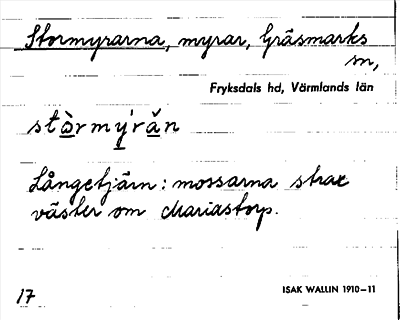 Stormyrarna, myrar, Gräsmarks
sn,
Fryksdals hd, Värmlands län
stòrmy̍rǎn
Långetjärn: mossarna strax
väster om Mariastorp.
17
ISAK WALLIN 1910–11